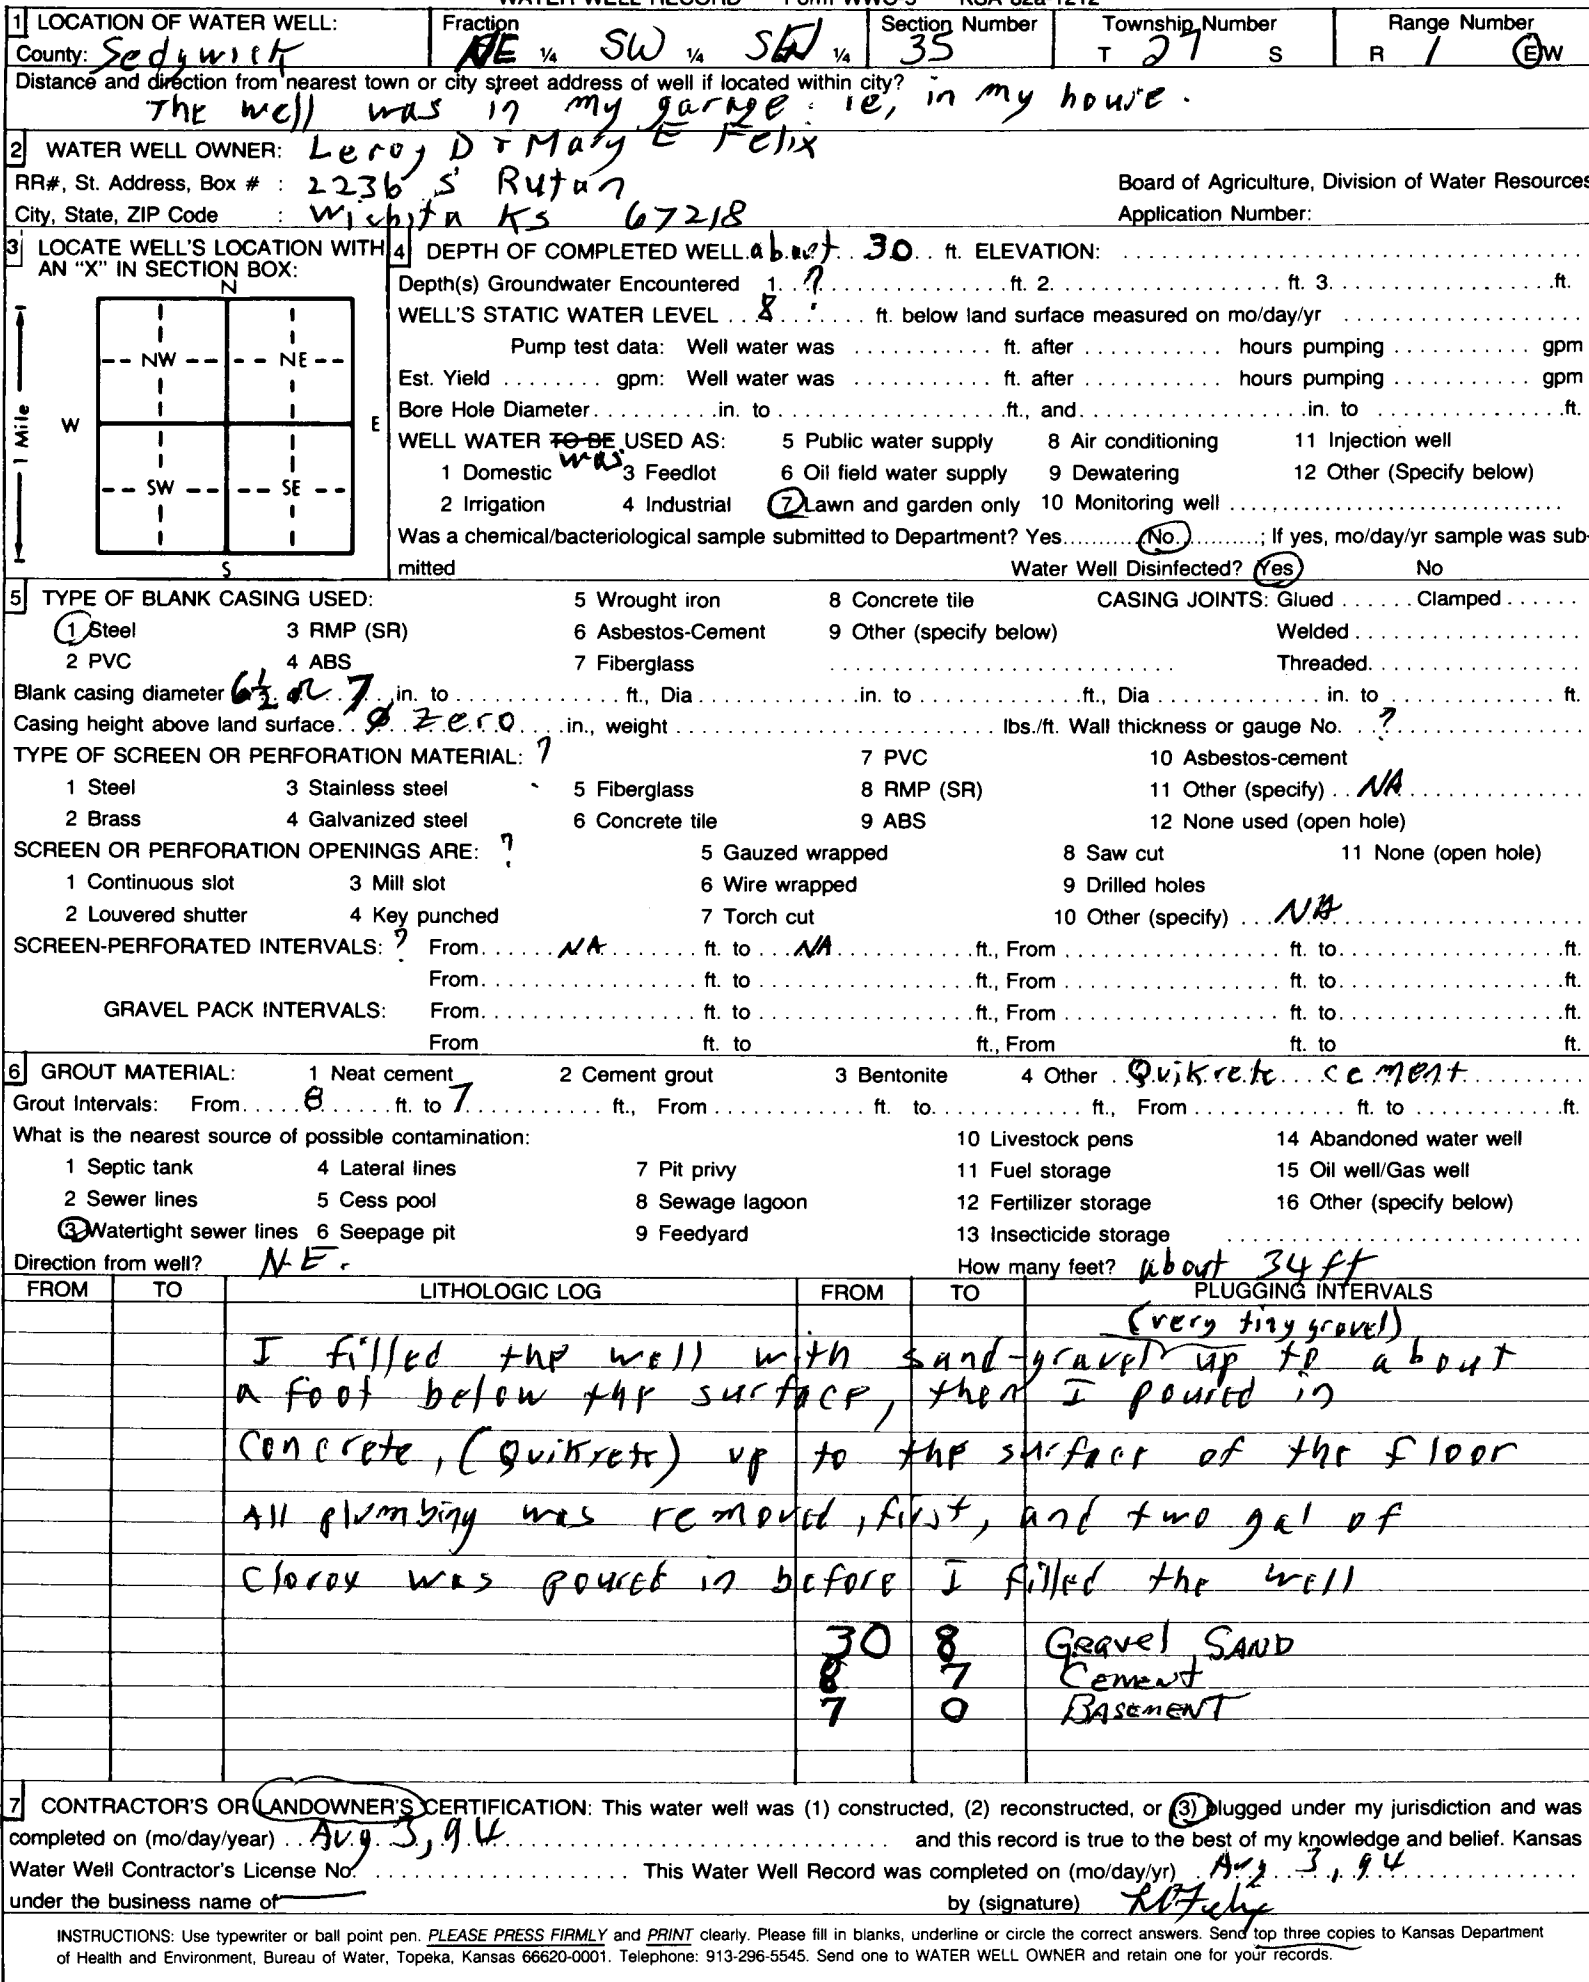 WATER WELL RECORD Form WWC-5 KSA 82a-1212
1 LOCATION OF WATER WELL: Fraction Section Number Township Number Range Number
County: Sedgwick NE ¼ SW ¼ ¼ 35 T 27 S R 1 E W
Distance and direction from nearest town or city street address of well if located within city?
The well was in my garage ie, in my house.
2 WATER WELL OWNER: Leroy D + Mary E Felix
RR#, St. Address, Box # : 2236 S Rutan Board of Agriculture, Division of Water Resources
City, State, ZIP Code : Wichita Ks 67218 Application Number:
3 LOCATE WELL'S LOCATION WITH AN "X" IN SECTION BOX:
N
NW NE
W E
SW SE
S
1 Mile
4 DEPTH OF COMPLETED WELL about 30 ft. ELEVATION:
Depth(s) Groundwater Encountered 1. ? ft. 2. ft. 3. ft.
WELL'S STATIC WATER LEVEL 8 ft. below land surface measured on mo/day/yr
Pump test data: Well water was ft. after hours pumping gpm
Est. Yield gpm: Well water was ft. after hours pumping gpm
Bore Hole Diameter in. to ft., and in. to ft.
WELL WATER TO BE was USED AS: 5 Public water supply 8 Air conditioning 11 Injection well
1 Domestic 3 Feedlot 6 Oil field water supply 9 Dewatering 12 Other (Specify below)
2 Irrigation 4 Industrial 7 Lawn and garden only 10 Monitoring well
Was a chemical/bacteriological sample submitted to Department? Yes No ; If yes, mo/day/yr sample was sub-
mitted Water Well Disinfected? Yes No
5 TYPE OF BLANK CASING USED: 5 Wrought iron 8 Concrete tile CASING JOINTS: Glued Clamped
1 Steel 3 RMP (SR) 6 Asbestos-Cement 9 Other (specify below) Welded
2 PVC 4 ABS 7 Fiberglass Threaded
Blank casing diameter 6½ or 7 in. to ft., Dia in. to ft., Dia in. to ft.
Casing height above land surface Ø zero in., weight lbs./ft. Wall thickness or gauge No. ?
TYPE OF SCREEN OR PERFORATION MATERIAL: ? 7 PVC 10 Asbestos-cement
1 Steel 3 Stainless steel 5 Fiberglass 8 RMP (SR) 11 Other (specify) NA
2 Brass 4 Galvanized steel 6 Concrete tile 9 ABS 12 None used (open hole)
SCREEN OR PERFORATION OPENINGS ARE: ? 5 Gauzed wrapped 8 Saw cut 11 None (open hole)
1 Continuous slot 3 Mill slot 6 Wire wrapped 9 Drilled holes
2 Louvered shutter 4 Key punched 7 Torch cut 10 Other (specify) NA
SCREEN-PERFORATED INTERVALS: ? From NA ft. to NA ft., From ft. to ft.
From ft. to ft., From ft. to ft.
GRAVEL PACK INTERVALS: From ft. to ft., From ft. to ft.
From ft. to ft., From ft. to ft.
6 GROUT MATERIAL: 1 Neat cement 2 Cement grout 3 Bentonite 4 Other Quikrete cement
Grout Intervals: From 8 ft. to 7 ft., From ft. to ft., From ft. to ft.
What is the nearest source of possible contamination: 10 Livestock pens 14 Abandoned water well
1 Septic tank 4 Lateral lines 7 Pit privy 11 Fuel storage 15 Oil well/Gas well
2 Sewer lines 5 Cess pool 8 Sewage lagoon 12 Fertilizer storage 16 Other (specify below)
3 Watertight sewer lines 6 Seepage pit 9 Feedyard 13 Insecticide storage
Direction from well? NE. How many feet? about 34 ft
FROM TO LITHOLOGIC LOG FROM TO PLUGGING INTERVALS
(very tiny gravel)
I filled the well with sand-gravel up to about
a foot below the surface, then I poured in
Concrete, (Quikrete) up to the surface of the floor
All plumbing was removed, first, and two gal of
Clorox was poured in before I filled the well
30 8 Gravel SAND
8 7 Cement
7 0 BASEMENT
7 CONTRACTOR'S OR LANDOWNER'S CERTIFICATION: This water well was (1) constructed, (2) reconstructed, or (3) plugged under my jurisdiction and was
completed on (mo/day/year) Aug 3, 94 and this record is true to the best of my knowledge and belief. Kansas
Water Well Contractor's License No. This Water Well Record was completed on (mo/day/yr) Aug 3, 94
under the business name of by (signature) LD Felix
INSTRUCTIONS: Use typewriter or ball point pen. PLEASE PRESS FIRMLY and PRINT clearly. Please fill in blanks, underline or circle the correct answers. Send top three copies to Kansas Department
of Health and Environment, Bureau of Water, Topeka, Kansas 66620-0001. Telephone: 913-296-5545. Send one to WATER WELL OWNER and retain one for your records.